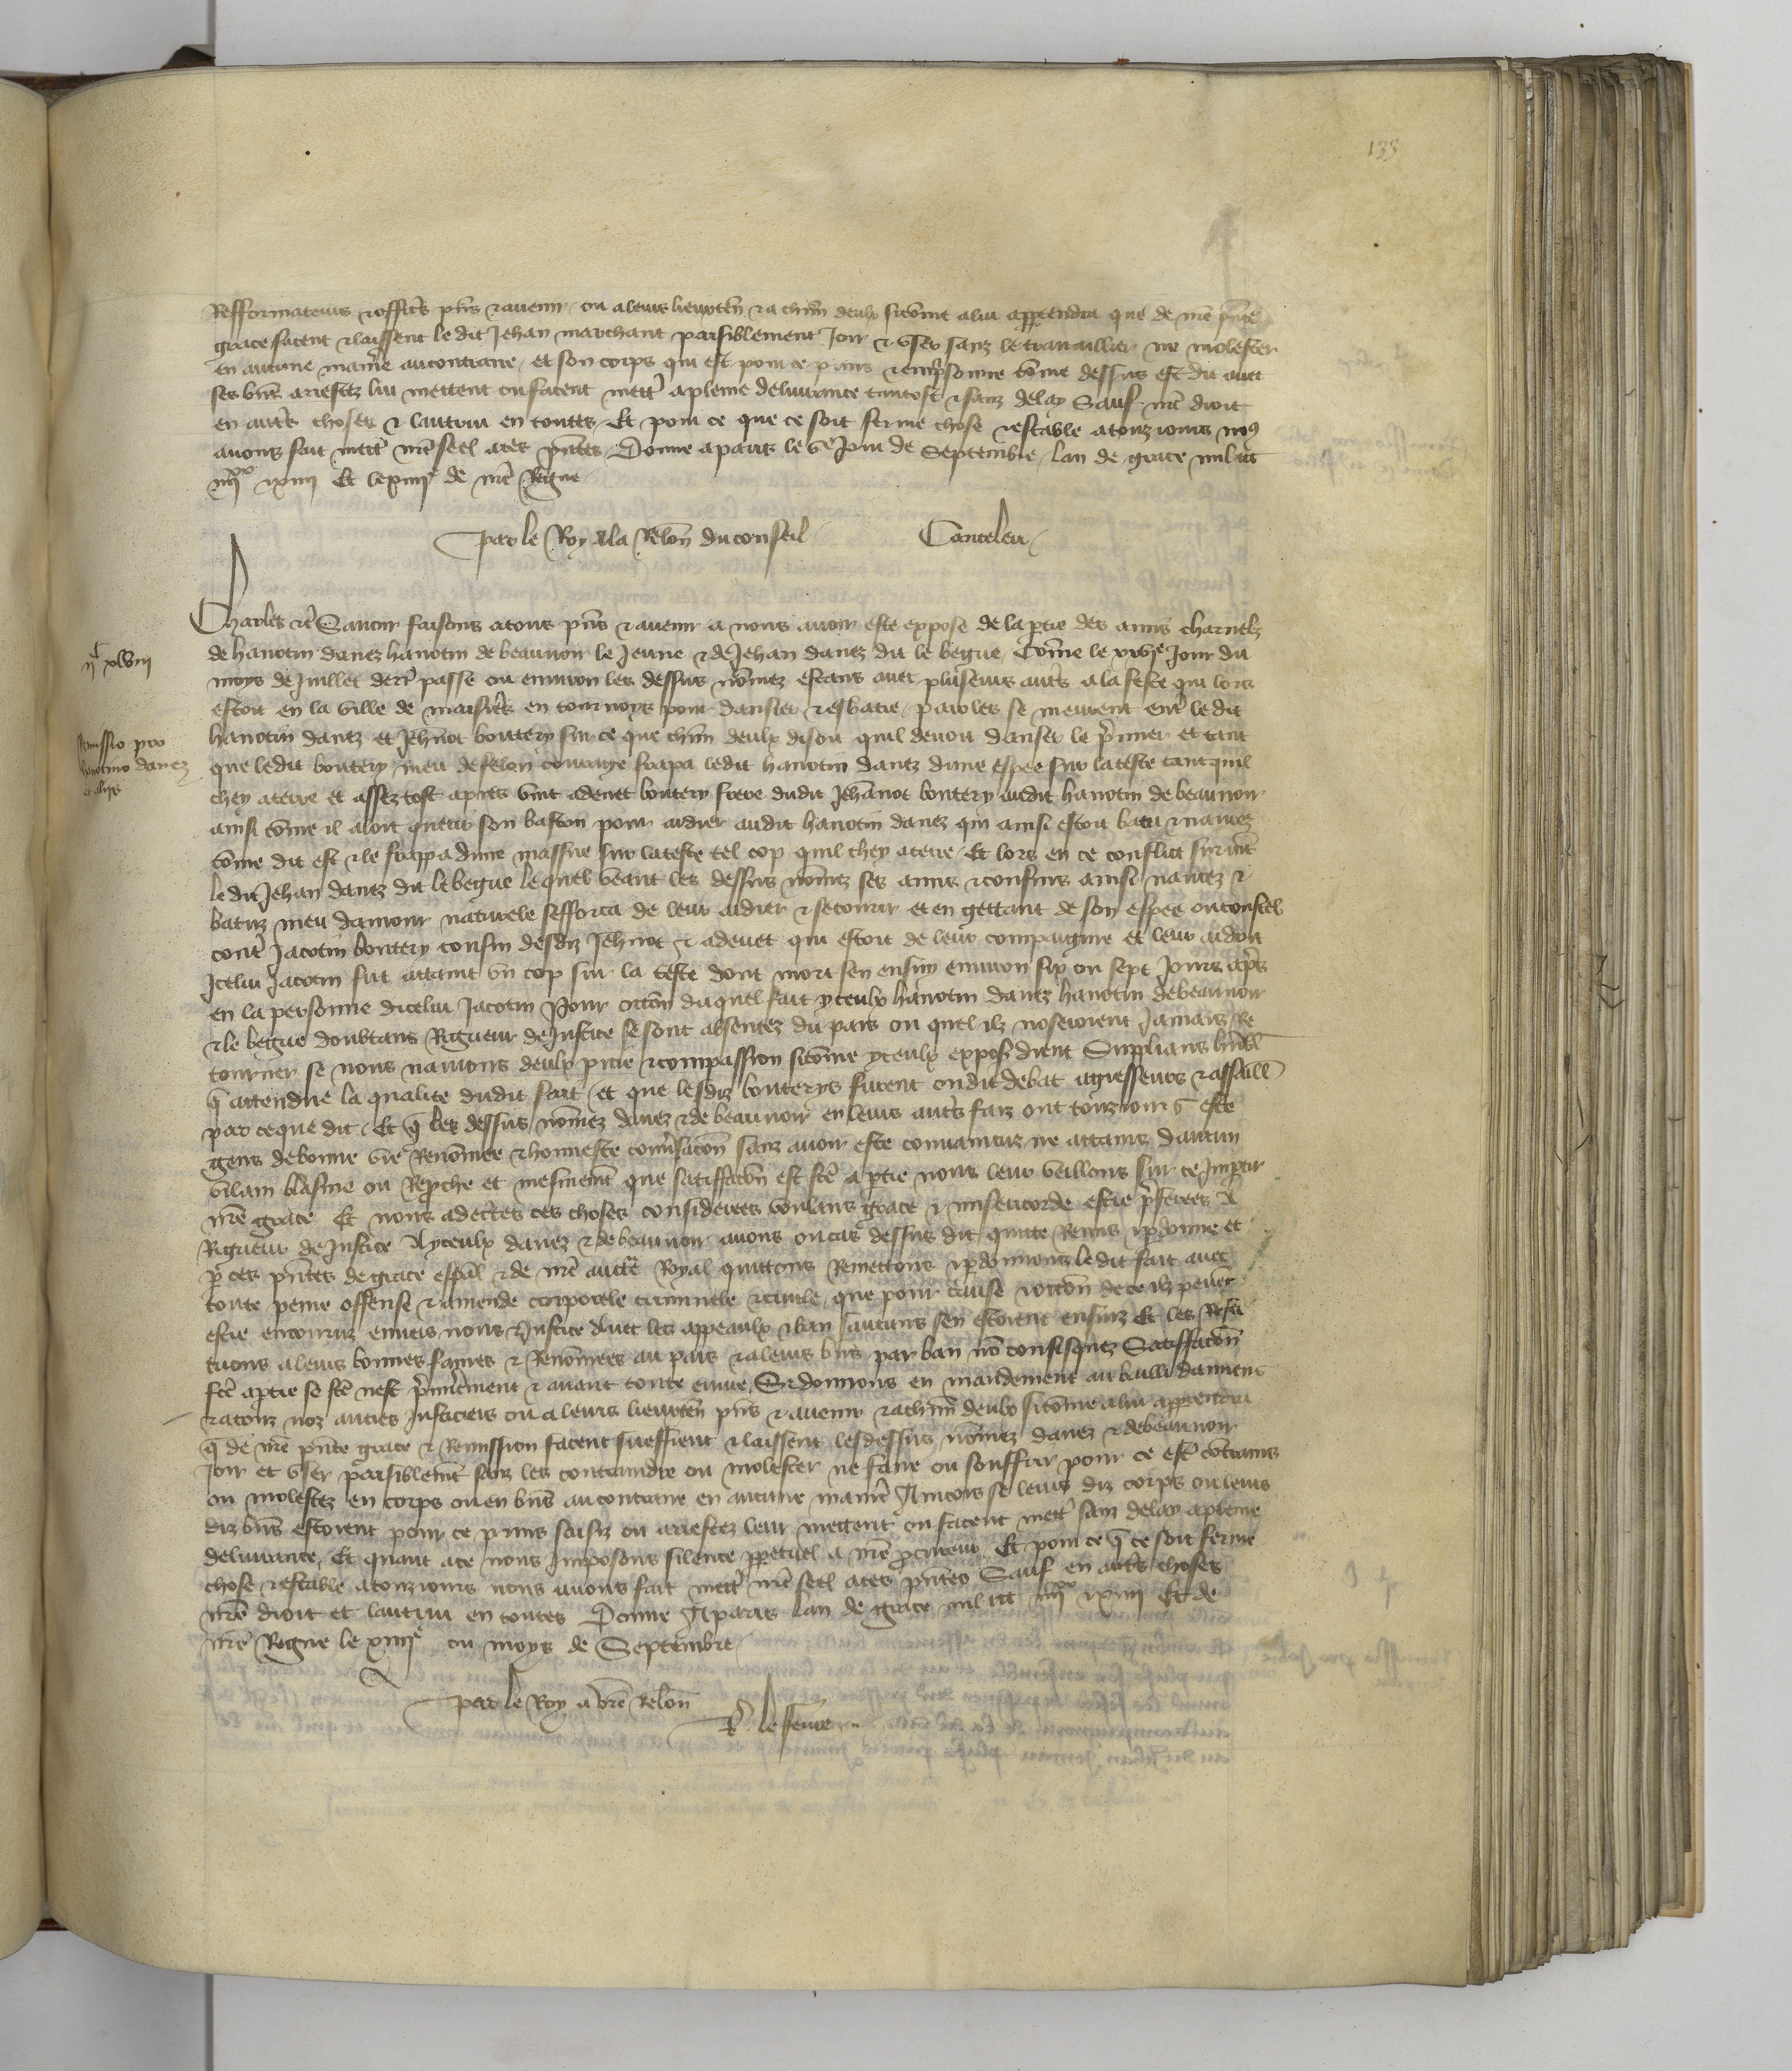 133
Refformateurs & officiers pñs & avenir ou a leurs lieuxten̄ & a chũn deulx si cõme a lui appartendra que de nr̃e pñte
grace facent & laissent le dit Jehan marchant paisiblement Joir & user sanz le travaillier ne molester
en aucune maniere au contraire et son corps qui est pour ce prins & emprisonne cõme dessus est dit avec
ses biens arrestez lui mettent ou facent mettr̃ a pleine delivrance tantost & sanz delay Sauf nr̃e droit
en autres choses & lautrui en toutes Et pour ce que ce soit ferme chose & estable a touz iours nous
avons fait mettr̃ nr̃e seel a ces pñtes Donne a paris le Ve Jour de Septembre lan de grace mil ccc
iiiixx xiiii Et le xiiiie de nr̃e Regne
par le Roy a la Relon̄ du conseil Canteleu
Charles etc̃ Savoir faisons a tous pñs & avenir a nous avoir este expose de la partie des amis charnelz
iic xlviii
de hanotin danez hanotin de beaunoir le Jeune & de Jehan danez dit le begue Cõme le xxvie Jour du
moys de Juillet derr̃ passe ou environ les dessus nõmez estans avec pluseurs autr̃s a la feste qui lors
estoit en la ville de maisieres en tournoys pour dansier & esbatre paroles se meurent entr̃ le dit
Remissio pro
hanotino danez
et aliis
hanotin danez et Jehñot boutery sur ce que chũn deulx disoit quil devoit danser le premier et tant
que ledit boutery meu de felon courage frapa ledit hanotin danez dune espee sur la teste tant quil
chey a terre et assez tost apres vint adenet boutery frere dudit Jehannot boutery audit hanotin de beaunoir
ainsi cõme il aloit querir son baston pour aidier audit hanotin danez qui ainsi estoit batu & navrez
cõme dit est & le frappa dune massue sur la teste tel cop quil chey a terre Et lors en ce conflict survint
le dit Jehan danez dit le begue lequel veant les dessus nõmez ses amis & cousins ainsi navrez &
batuz meu damour naturele sefforca de leur aidier & secourir et en gettant de son espee ou coustel
contr̃ Jacotin boutery cousin desdiz Jehñot & adenet qui estoit de leur compaignie et leur aidoit
Icelui Jacotin fut attaint un cop sur la teste dont mort sen ensuy environ six ou sept Jours apr̃s
en la personne dicelui Jacotin Pour occõn duquel fait yceulx hanotin danez hanotin de beaunoir
& le begue doubtans Rigueur de Justice se sont absentez du pais ou quel ilz noseroient Jamais Re
tourner se nous navions deulx pitie & compassion si cõme yceulx expos̃ dient Supplians humblẽ
q̃ attendue la qualite dudit fait et que lesdiz bouterys furent ou dit debat agresseurs & assaill̃
par ce que dit Et q̃ les dessus nõmez danez & de beaunoir en leurs autr̃s faiz ont touz iours este
gens de bonne vie Renõmee & honneste conversacõn sanz avoir este convaincuz ne attains daucun
vilain blasme ou Reprouche et mesmem̃t que satiffacõn est f̃cte a partie nous leur veillons sur ce Impartir
nr̃e grace Et nous adecertes ces choses considerees voulans grace & misericorde estre preferees a
Rigueur de Justice A yceulx danez & de beaunoir avons ou cas dessus dit quitte Remis & pardonne et
p̃ ces pñtes de grace esp̃al & de nr̃e auctẽ Royal quittons Remettons & pardonnons le dit fait avec
toute peine offense & amende corporele criminele & civile que pour cause & occõn de ce ilz peuẽt
estre encouruz envers nous & Justice avec les appeaulx & ban saucuns sen estoient ensuiz Et les Resti
tuons a leurs bonnes fames & Renõmees au pais & a leurs biens par ban nõ confisquez Satiffacõn
f̃cte a partie se f̃cte nest premierement & avant toute euvre Si donnons en mandement au bailli damiens
& a touz noz autres Justiciers ou a leurs lieuxten̄ pñs & avenir & a chũn deulx si cõme a lui appartendra
q̃ de nr̃e pñte grace & Remission facent sueffrent & laissent les dessus nõmez danez & de beaunoir
Joir et user paisiblem̃t sanz les contraindre ou molester ne faire ou souffrir pour ce estr̃ contrains
ou molestez en corps ou en biens au contraire en aucune manier̃e Aincois se leurs diz corps ou leurs
diz biens estoient pour ce prins saisiz ou arrestez leur mettent ou facent mettr̃ sanz delay a pleine
delivrance Et quant a ce nous Imposons silence perpetuel a nr̃e procureur Et pour ce q̃ ce soit ferme
chose & estable a touz iours nous avons fait mettr̃ nr̃e seel a ces pñtes Sauf en autr̃s choses
nr̃e droit et lautrui en toutes Donne A paris lan de grace mil ccc iiiixx xiiii Et de
nr̃e Regne le xiiiie ou moys de Septembre
par le Roy a vr̃e Relon̄
P. le fevre